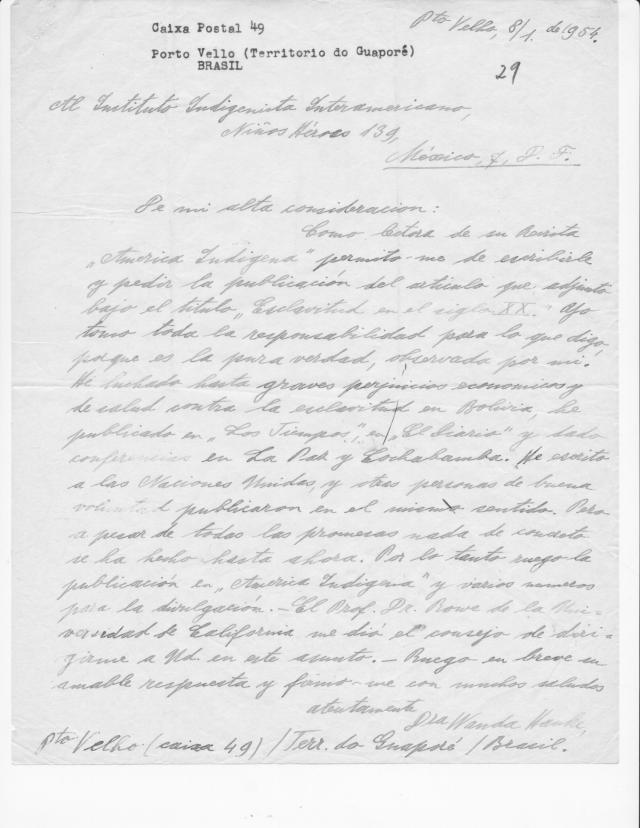 Caixa Postal 49
Porto Vello (Territorio do Guaporé)
BRASIL
Pto Velho, 8/1. de 1954.
29
Al Instituto Indigenista Interamericano,
Niños Héroes 139,
México, 7, D. F.
De mi alta consideracion:
Como lectora de su Revista
„America Indigena" permito-me de escribirle
y pedir la publicación del articulo que adjunto
bajo el titulo „Esclavitud en el siglo XX." Yo
tomo toda la responsabilidad para lo que digo,
porque es la pura verdad, observada por mi.
He luchado hasta graves perjuicios economicos y
de salud contra la esclavitud en Bolivia, he
publicado en „Los Tiempos", en „El Diario" y dado
conferencias en La Paz y Cochabamba. He escrito
a las Naciones Unidas, y otras personas de buena
voluntad publicaron en el mismo sentido. Pero
a pesar de todas las promesas nada de concreto
se ha hecho hasta ahora. Por lo tanto ruego la
publicación en „America Indigena" y varios numeros
para la divulgación. – El Prof. Dr. Rowe de la Uni-
versidad de California me dió el consejo de diri-
girme a Ud. en este asunto. – Ruego en breve su
amable respuesta y firmo-me con muchos saludos
atentamente
Dra Wanda Hanke,
Pto Velho (caixa 49) / Terr. do Guaporé / Brasil.